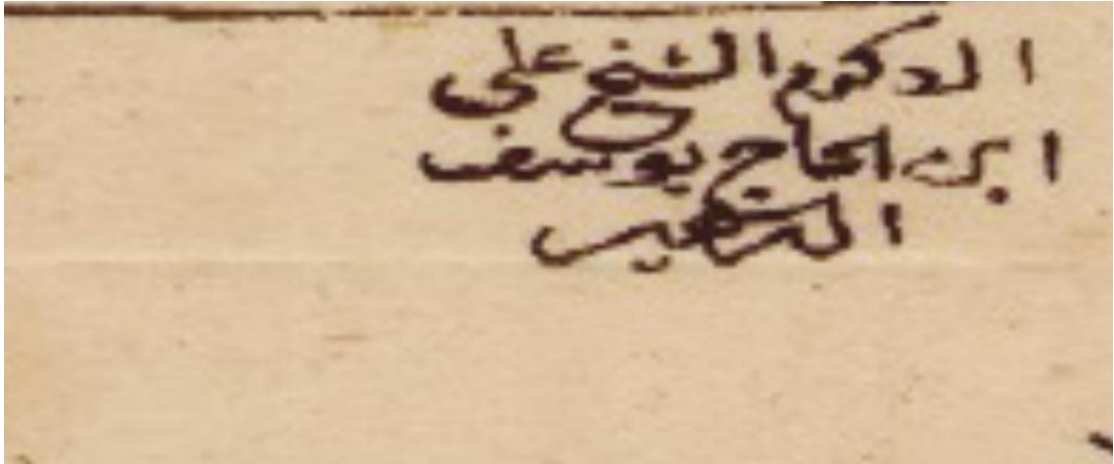 الاكرم الشيخ علي
ابن الحاج يوسف
الزهير